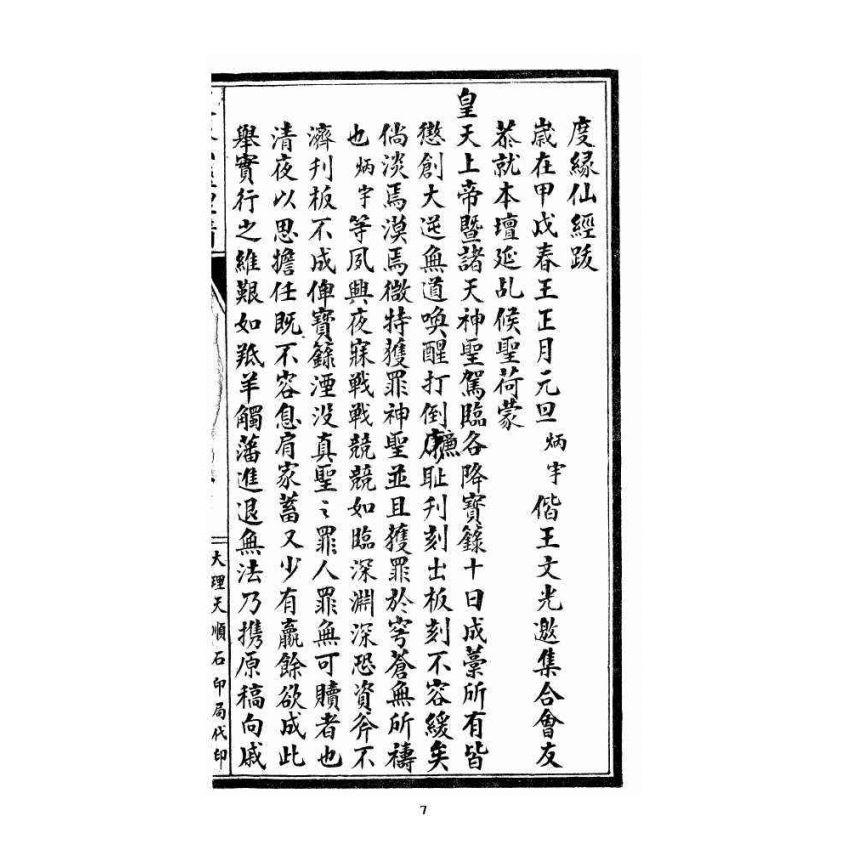 度緣仙經跋
歲在甲戌春王正月元旦炳宇偕王文光邀集合會友
恭就本壇延乩候聖荷蒙
皇天上帝暨諸天神聖駕臨各降寶籙十日成藁所有皆
懲創大逆無道喚醒打倒廉恥刋刻出板刻不容緩矣
倘淡焉漠焉微特獲罪神聖並且獲罪於穹蒼無所禱
也炳宇等夙興夜寐戰戰競競如臨深淵深恐資斧不
濟刋板不成俾寶籙湮没真聖之罪人罪無可贖者也
清夜以思擔任既不容息肩家蓄又少有贏餘欲成此
舉實行之維艱如羝羊觸藩進退無法乃携原稿向戚
大理天順石印局代印
7